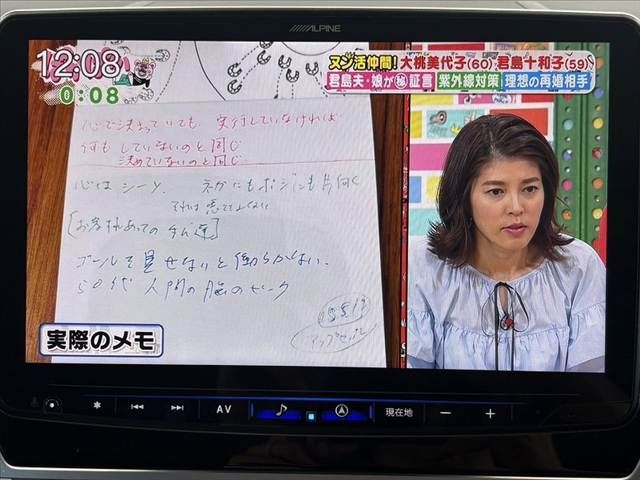 ALPINE
12:08
0:08
ヌン活仲間!大桃美代子(60)、君島十和子(59)
君島夫・娘が㊙証言 紫外線対策 理想の再婚相手
心で決まっていても 実行していなければ
何もしていないのと同じ
決めていないのと同じ
心は シーソー ネガにもポジにも片向く
[お客様あっての 私達]
ゴールを見せないと働らかない。
50代 人間の脳のピーク
実際のメモ
AV
現在地